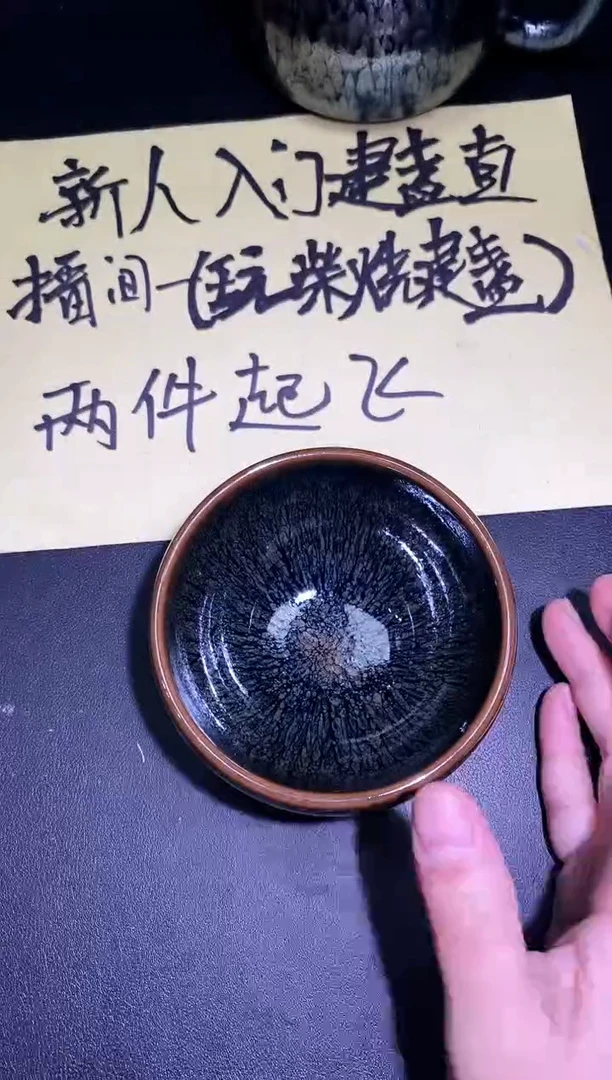 新人入门建盏直
播间一(玩柴烧建盏)
两件起飞